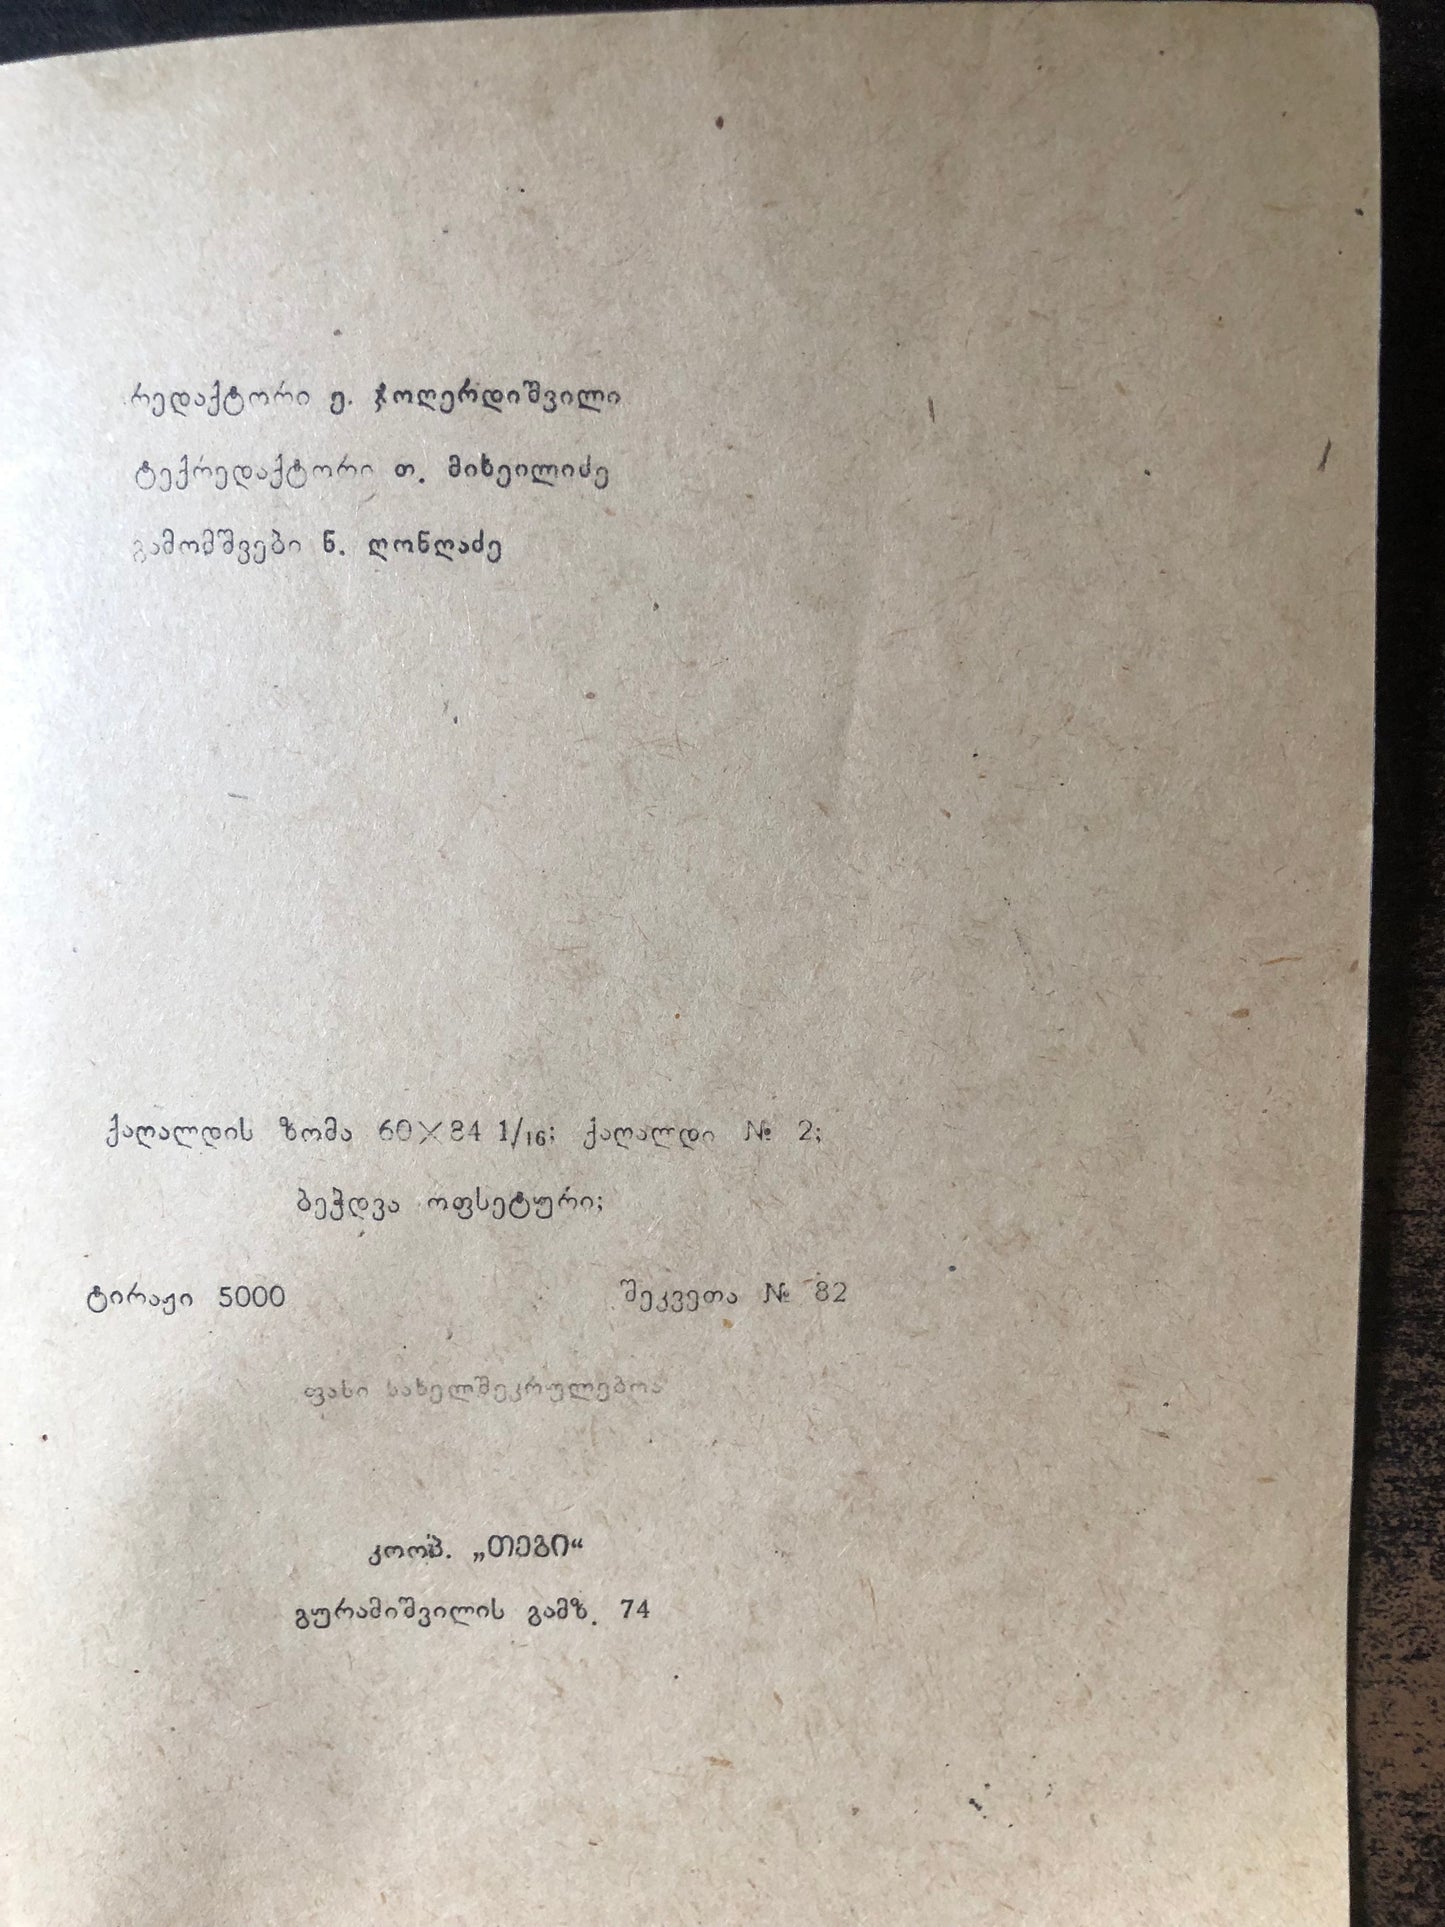 რედაქტორი ე. ჯოღერდიშვილი
ტექრედაქტორი თ. მიხეილიძე
გამომშვები ნ. ღონღაძე
ქაღალდის ზომა 60×84 1/16; ქაღალდი № 2;
ბეჭდვა ოფსეტური;
ტირაჟი 5000 შეკვეთა № 82
ფასი სახელშეკრულებოა
კოოპ. „თეგი“
გურამიშვილის გამზ. 74